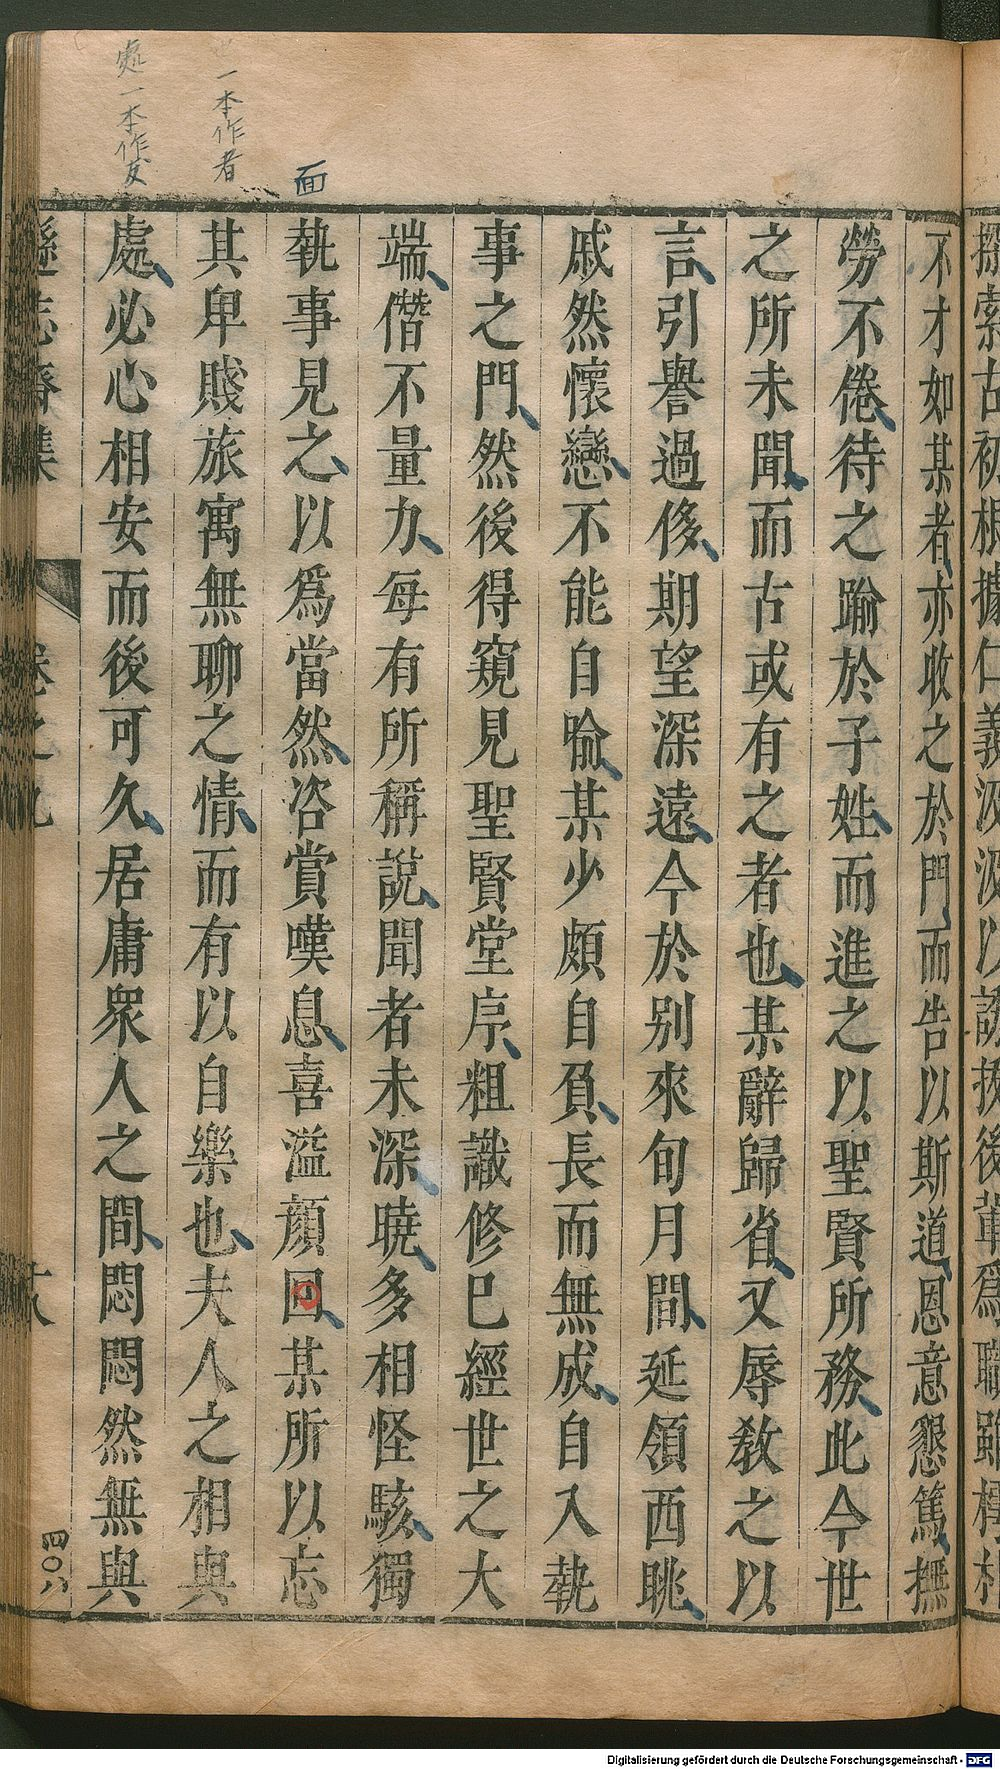 探索古初根據仁義汲汲以誘掖後輩爲職雖
不才如某者亦收之於門而告以斯道恩意懇篤撫
勞不倦待之踰於子姓而進之以聖賢所務此今世
之所未聞而古或有之者也某辭歸省又辱敎之以
言引譽過侈期望深遠今於别來旬月間延領西眺
戚然懷戀不能自喻某少頗自負長而無成自入執
事之門然後得窺見聖賢堂序粗識修巳經世之大
端僭不量力每有所稱說聞者未深曉多相怪駭獨
執事見之以爲當然咨賞嘆息喜溢顔回某所以忘
其卑賤旅寓無聊之情而有以自樂也夫人之相與
處必心相安而後可久居庸衆人之間悶悶然無與
遜志齋集 卷之九 十八
面
一本作者
處一本作友
四〇八
Digitalisierung gefördert durch die Deutsche Forschungsgemeinschaft - DFG